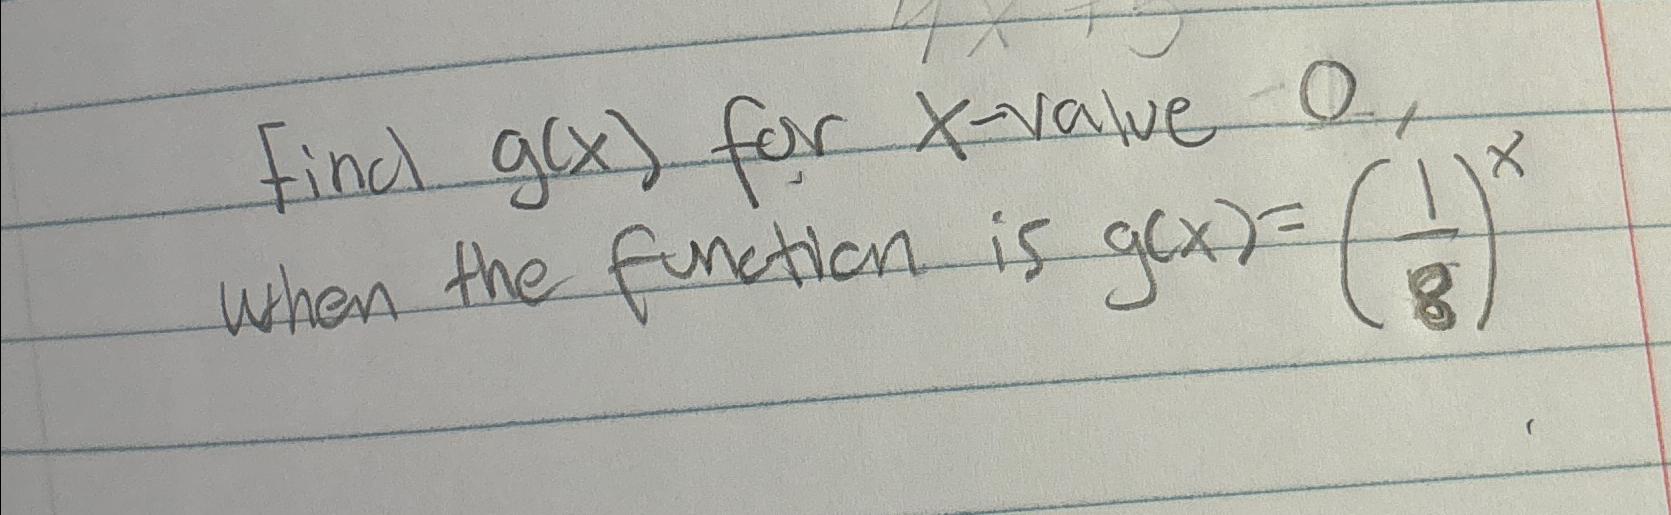 4x+5
find g(x) for x-value 0,
when the function is g(x)=(1/8)^x